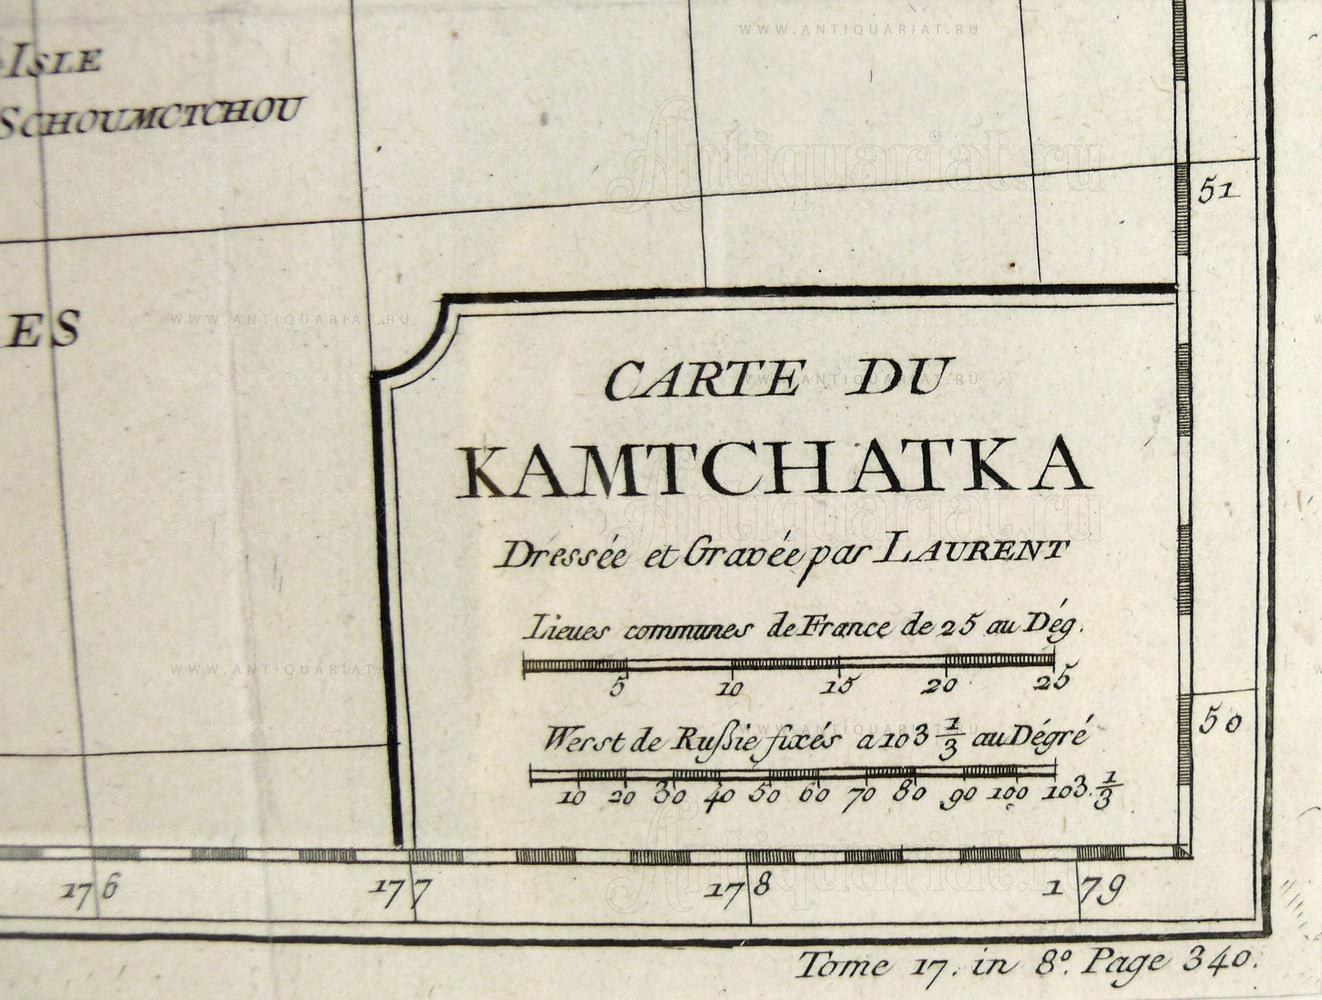 WWW.ANTIQUARIAT.RU
ISLE
SCHOUMCTCHOU
Antiquariat.ru
51
ES
WWW.ANTIQUARIAT.RU
CARTE DU
WWW.ANTIQUARIAT.RU
KAMTCHATKA
Antiquariat.ru
Dressée et Gravée par LAURENT
Lieues communes de France de 25 au Dég.
WWW.ANTIQUARIAT
5 10 15 20 25
50
Werst de Rußie fixés a 103 1/3 au Dégré
10 20 30 40 50 60 70 80 90 100 103 1/3
Antiquariat.ru
176 177 178 179
Tome 17. in 8º. Page 340.